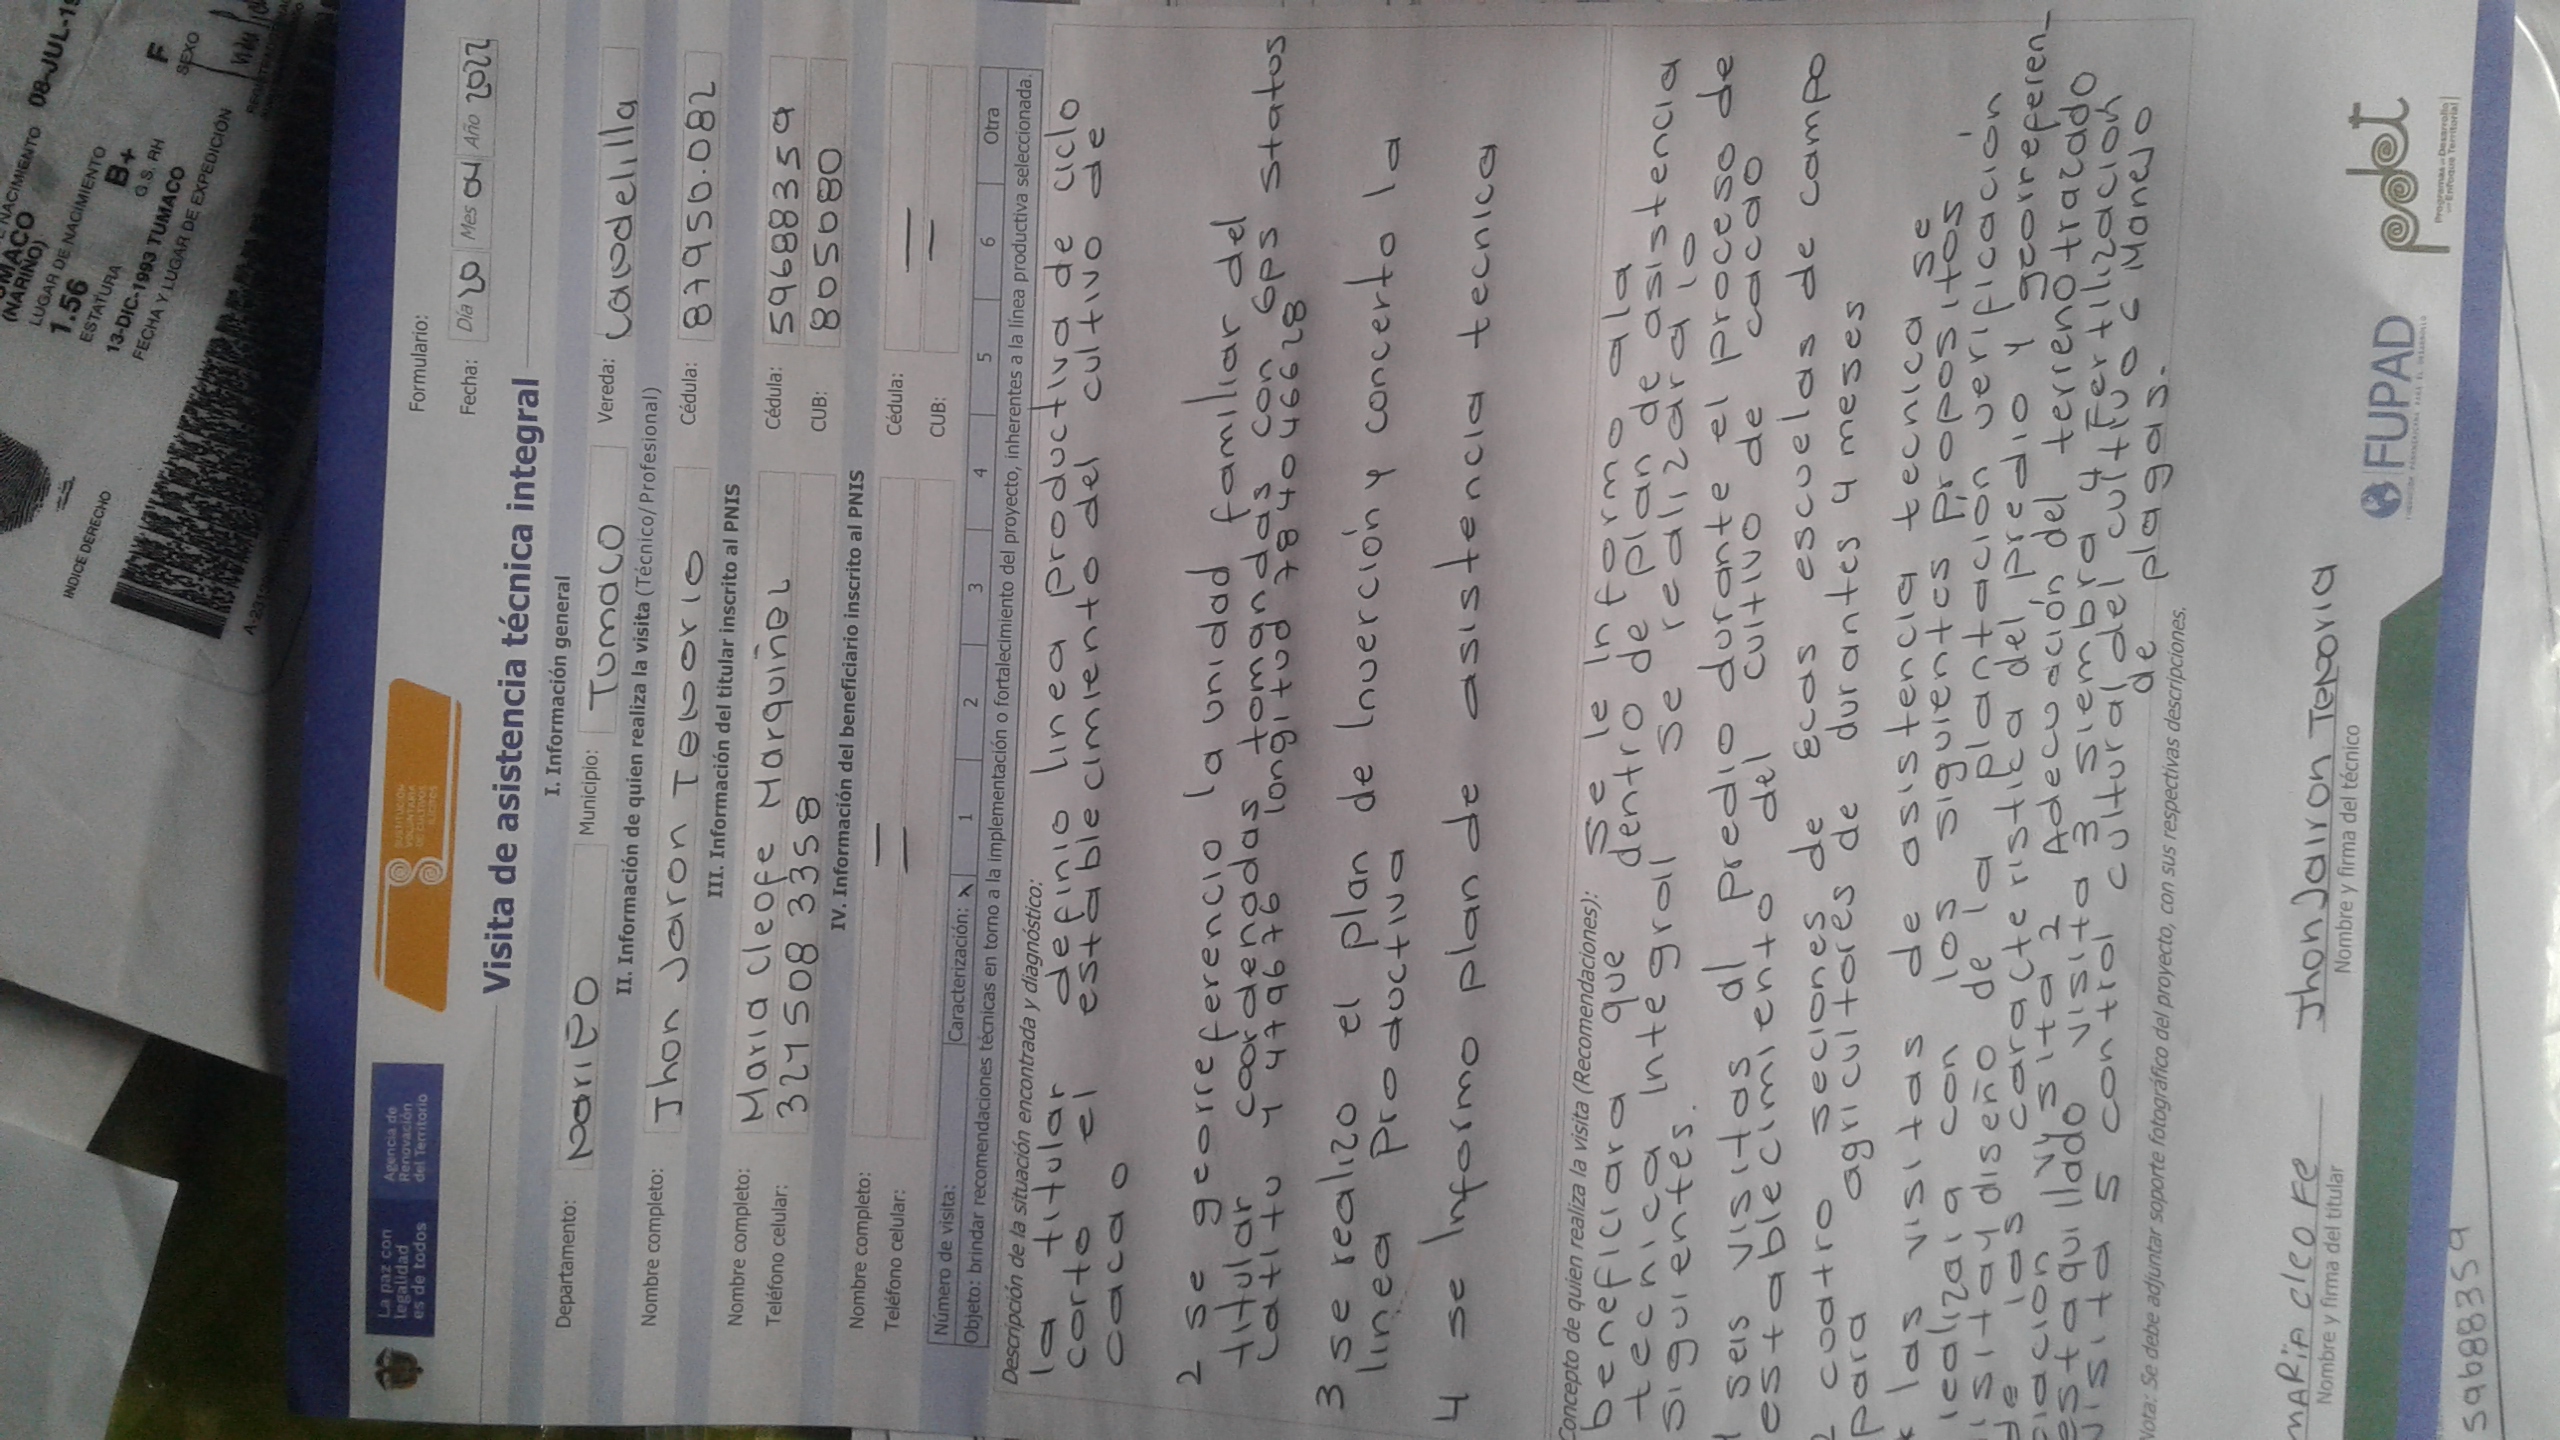 NACIMIENTO 08-JUL-19
(NARIÑO)
LUGAR DE NACIMIENTO
1.56
ESTATURA
B+
G.S. RH
F
SEXO
13-DIC-1993 TUMACO
FECHA Y LUGAR DE EXPEDICION
INDICE DERECHO
La paz con
legalidad
es de todos
Agencia de
Renovación
del Territorio
SUSTITUCIÓN
VOLUNTARIA
DE CULTIVOS
ILÍCITOS
Formulario:
Fecha: Día 20 Mes 04 Año 2022
Visita de asistencia técnica integral
I. Información general
Departamento: Nariño Municipio: Tumaco Vereda:
II. Información de quien realiza la visita (Técnico/ Profesional)
Nombre completo: Jhon Jaron Tenorio Cédula: 87950.082
III. Información del titular inscrito al PNIS
Nombre completo: Maria Cleofe Marquinez Cédula: 59688359
Teléfono celular: 321508 3358 CUB: 805080
IV. Información del beneficiario inscrito al PNIS
Nombre completo: Cédula:
Teléfono celular: CUB:
Número de visita: Caracterización: x 1 2 3 4 5 6 Otra
Objeto: brindar recomendaciones técnicas en torno a la implementación o fortalecimiento del proyecto, inherentes a la línea productiva seleccionada.
Descripción de la situación encontrada y diagnóstico:
la titular definio linea productiva de ciclo
corto el establecimiento del cultivo de
cacao
2 se georreferencio la unidad familiar del
titular coordenadas tomandas con Gps status
Latitu 1 479676 longitud 7840 46628
3 se realizo el plan de Inuerción y concerto la
linea productiva
4 se Informo plan de asistencia tecnica
Concepto de quien realiza la visita (Recomendaciones): se le Informo ala
beneficiara que dentro de plan de asistencia
tecnica Integrall se realizara lo
siguientes.
1 seis visitas al predio durante el proceso de
establecimiento del cultivo de cacao
2 coatro seciones de Ecas escuelas de campo
para agricultores de durantes 4 meses
* las visitas de asistencia tecnica se
realizara con los siguientes propositos
visita y diseño de la plantación verificación
de las caracteristica del predio y georreferen-
ciacion visita 2 Adecuación del terreno trazado
estaquillado visita 3 siembra 4 Fertilización
visita 5 control cultural del cultivo 6 Manejo
de plagas.
Nota: Se debe adjuntar soporte fotográfico del proyecto, con sus respectivas descripciones.
MARIA CleoFe
Nombre y firma del titular
Jhon Jairon Tenoria
Nombre y firma del técnico
59688359
FUPAD
pdet
Programas de Desarrollo
con Enfoque Territorial